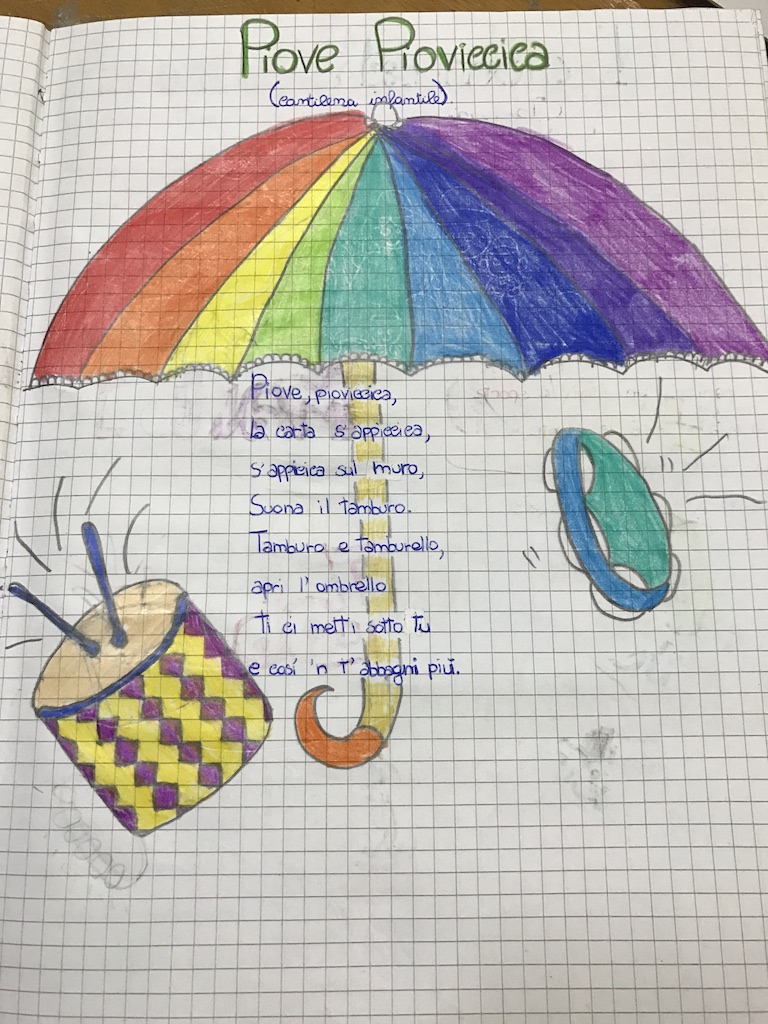 Piove Pioviccica
(cantilena infantile)
Piove, pioviccica,
la carta s'appiccica,
s'appicica sul muro,
Suona il tamburo.
Tamburo e tamburello,
apri l'ombrello
ti ci metti sotto tu
e cosí 'n t'abbagni piú.